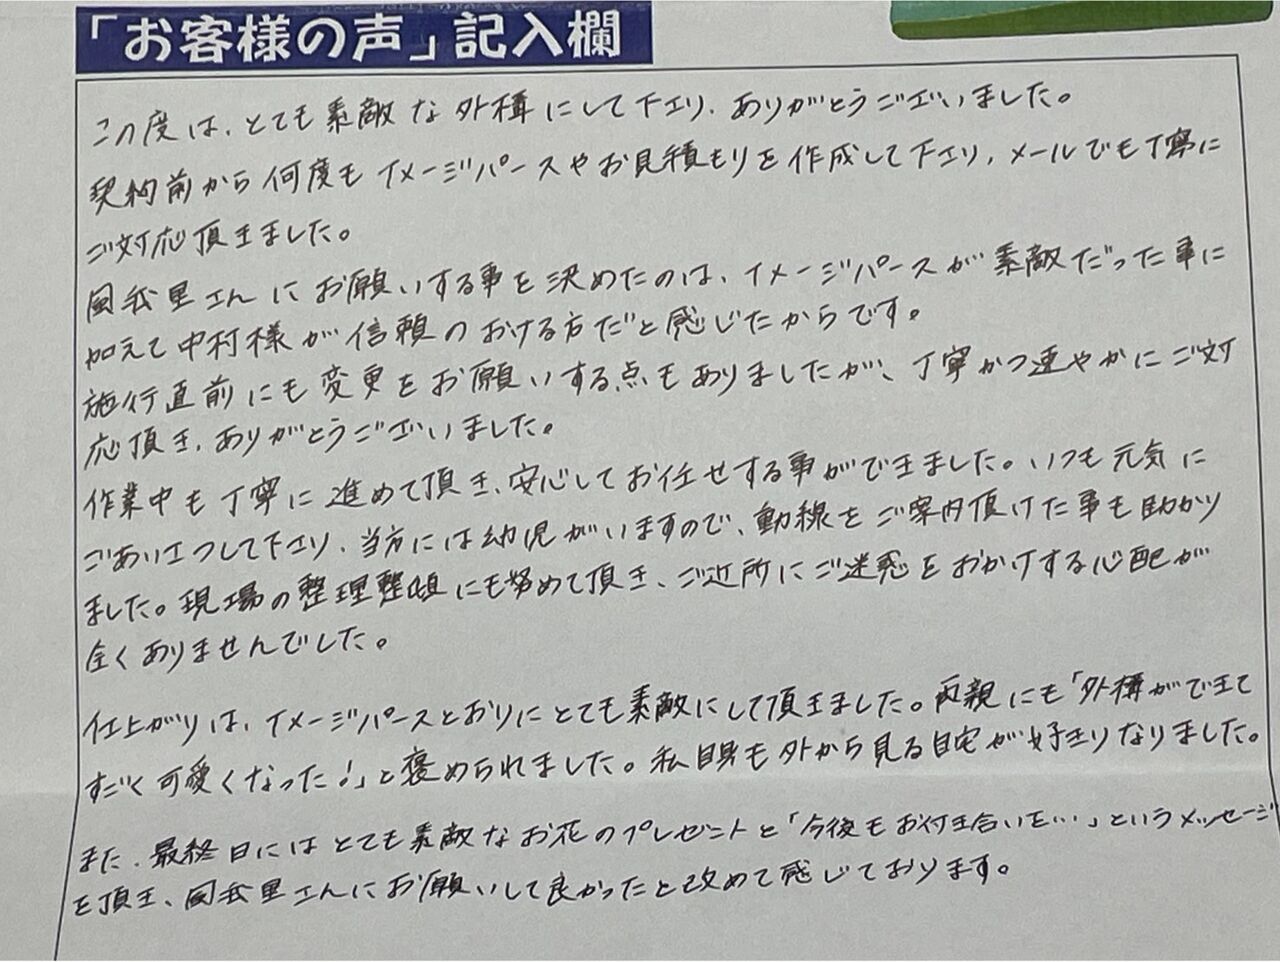 「お客様の声」記入欄
この度は、とても素敵な外構にして下さり、ありがとうございました。
契約前から何度もイメージパースやお見積もりを作成して下さり、メールでも丁寧に
ご対応頂きました。
風我里さんにお願いする事を決めたのは、イメージパースが素敵だった事に
加えて中村様が信頼のおける方だと感じたからです。
施行直前にも変更をお願いする点もありましたが、丁寧かつ速やかにご対
応頂き、ありがとうございました。
作業中も丁寧に進めて頂き、安心してお任せする事ができました。いつも元気に
ごあいさつして下さり、当方には幼児がいますので、動線をご案内頂けた事も助かり
ました。現場の整理整頓にも努めて頂き、ご近所にご迷惑をおかけする心配が
全くありませんでした。
仕上がりは、イメージパースとおりにとても素敵にして頂きました。両親にも「外構ができて
すごく可愛くなった!」と褒められました。私自身も外から見る自宅が好きりなりました。
また、最終日にはとても素敵なお花のプレゼントと「今後もお付き合いを…」というメッセージ
を頂き、風我里さんにお願いして良かったと改めて感じております。